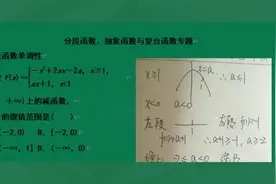 分段函数、抽象函数与复合函数专题
函数单调性
f(x)= -x²+2ax-2a, x≥1,
ax+1, x<1
+∞)上的减函数,
的取值范围是(
-2,0) B. [-2,0)
-∞,1] D. (-∞,0)
x≥1
x=a
1
∴a≤1
x<0 a<0
左段
右段
f(1)=-1
f(1)=a+1
∴a+1≥-1, a≥-2
-2≤a<0
选B